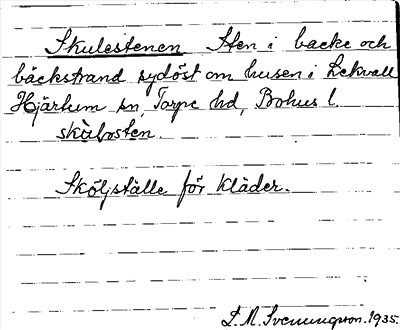 Skulestenen Sten i backe och
bäckstrand sydöst om husen i Lekvall
Hjärtum sn, Torpe hd, Bohus l.
skùlosten
Sköljställe för kläder.
L. M. Svenungsson. 1935.